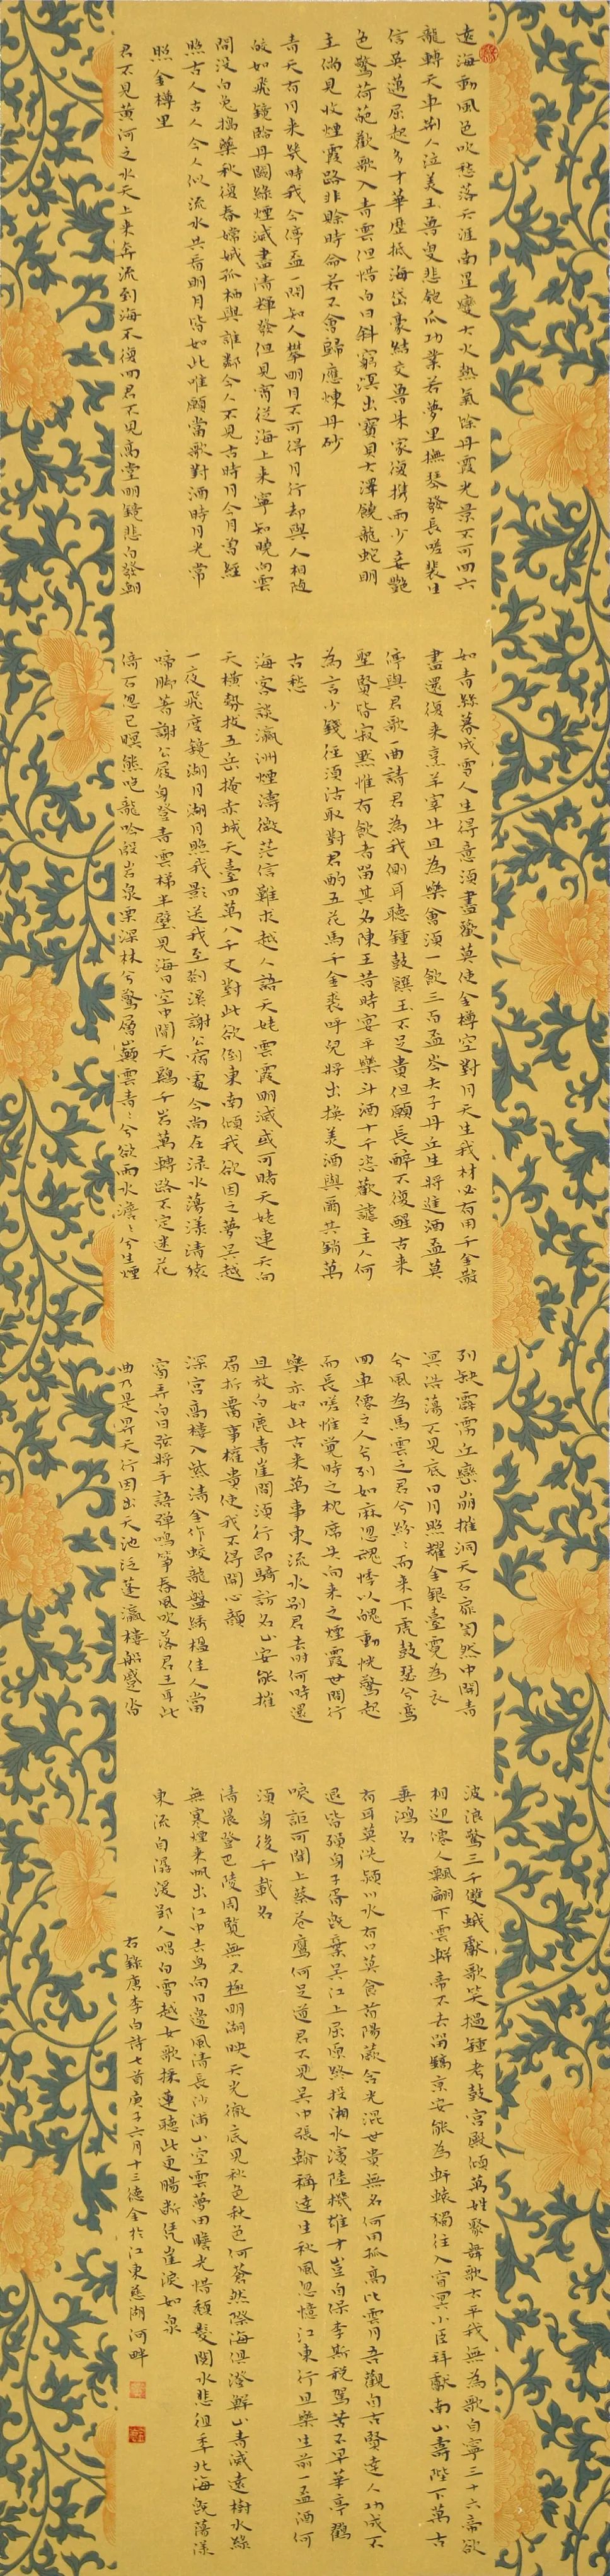 遠海動風色吹愁落天涯南星變大火熱氣餘丹霞光景不可回六
龍轉天車荆人泣美玉魯叟悲匏瓜功業若夢里撫琴發長嗟裴生
信英邁屈起多才華歷抵海岱豪結交魯朱家復攜兩少妾艷
色驚荷葩歡歌入青雲但惜白日斜窮溟出寶貝大澤饒龍蛇明
主倘見收煙霞路非賒時命若不會歸應煉丹砂
青天有月来幾時我今停盃一問知人攀明月不可得月行却與人相隨
皎如飛鏡臨丹闕綠煙滅盡清輝發但見宵從海上来寧知曉向雲
間沒白兔搗藥秋復春嫦娥孤棲與誰鄰今人不見古時月今月曾經
照古人古人今人似流水共看明月皆如此唯願當歌對酒時月光常
照金樽里
君不見黃河之水天上来奔流到海不復回君不見高堂明鏡悲白發朝
如青絲暮成雪人生得意須盡歡莫使金樽空對月天生我材必有用千金散
盡還復来烹羊宰牛且為樂會須一飲三百盃岑夫子丹丘生將進酒盃莫
停與君歌一曲請君為我側耳聽鍾鼓饌玉不足貴但願長醉不復醒古来
聖賢皆寂默惟有飲者留其名陳王昔時宴平樂斗酒十千恣歡謔主人何
為言少錢徑須沽取對君酌五花馬千金裘呼兒將出換美酒與爾共銷萬
古愁
海客談瀛洲煙濤微茫信難求越人語天姥雲霞明滅或可睹天姥連天向
天橫勢拔五岳掩赤城天臺四萬八千丈對此欲倒東南傾我欲因之夢吳越
一夜飛度鏡湖月湖月照我影送我至剡溪謝公宿處今尚在淥水蕩漾清猿
啼脚著謝公屐身登青雲梯半壁見海日空中聞天雞千岩萬轉路不定迷花
倚石忽已暝熊咆龍吟殷岩泉栗深林兮驚層巔雲青〻兮欲雨水澹〻兮生煙
列缺霹靂丘巒崩摧洞天石扉訇然中開青
冥浩蕩不見底日月照耀金銀臺霓為衣
兮風為馬雲之君兮紛〻而来下虎鼓瑟兮鸞
回車僊之人兮列如麻忽魂悸以魄動恍驚起
而長嗟惟覺時之枕席失向来之煙霞世間行
樂亦如此古来萬事東流水別君去時何時還
且放白鹿青崖間須行即騎訪名山安能摧
眉折要事權貴使我不得開心顏
深宮高樓入紫清金作蛟龍盤綉楹佳人當
窗弄白日弦將手語彈鳴箏春風吹落君王耳此
曲乃是昇天行因出天池泛蓬瀛樓船蹙沓
波浪驚三千雙蛾獻歌笑撾鍾考鼓宮殿傾萬姓聚舞歌太平我無為歌自寧三十六帝欲
相迎僊人飄翩下雲軿帝不去留鎬京安能為軒轅獨往入窅冥小臣拜獻南山壽陛下萬古
垂鴻名
有耳莫洗潁川水有口莫食首陽蕨含光混世貴無名何用孤高比雲月吾觀自古賢達人功成不
退皆殞身子胥既棄吳江上屈原終投湘水濱陸機雄才豈自保李斯稅駕苦不早華亭鶴
唳詎可聞上蔡蒼鷹何足道君不見吳中張翰稱達生秋風忽憶江東行且樂生前一盃酒何
須身後千載名
清晨登巴陵周覽無不極明湖映天光徹底見秋色秋色何蒼然際海俱澄鮮山青滅遠樹水綠
無寒煙来帆出江中去鳥向日邊風清長沙浦山空雲夢田瞻光惜頹髮閱水悲徂年北渚既蕩漾
東流自潺湲郢人唱白雪越女歌採蓮聽此更腸斷憑崖淚如泉
右錄唐李白詩七首庚子六月十三德金於江東慈湖河畔